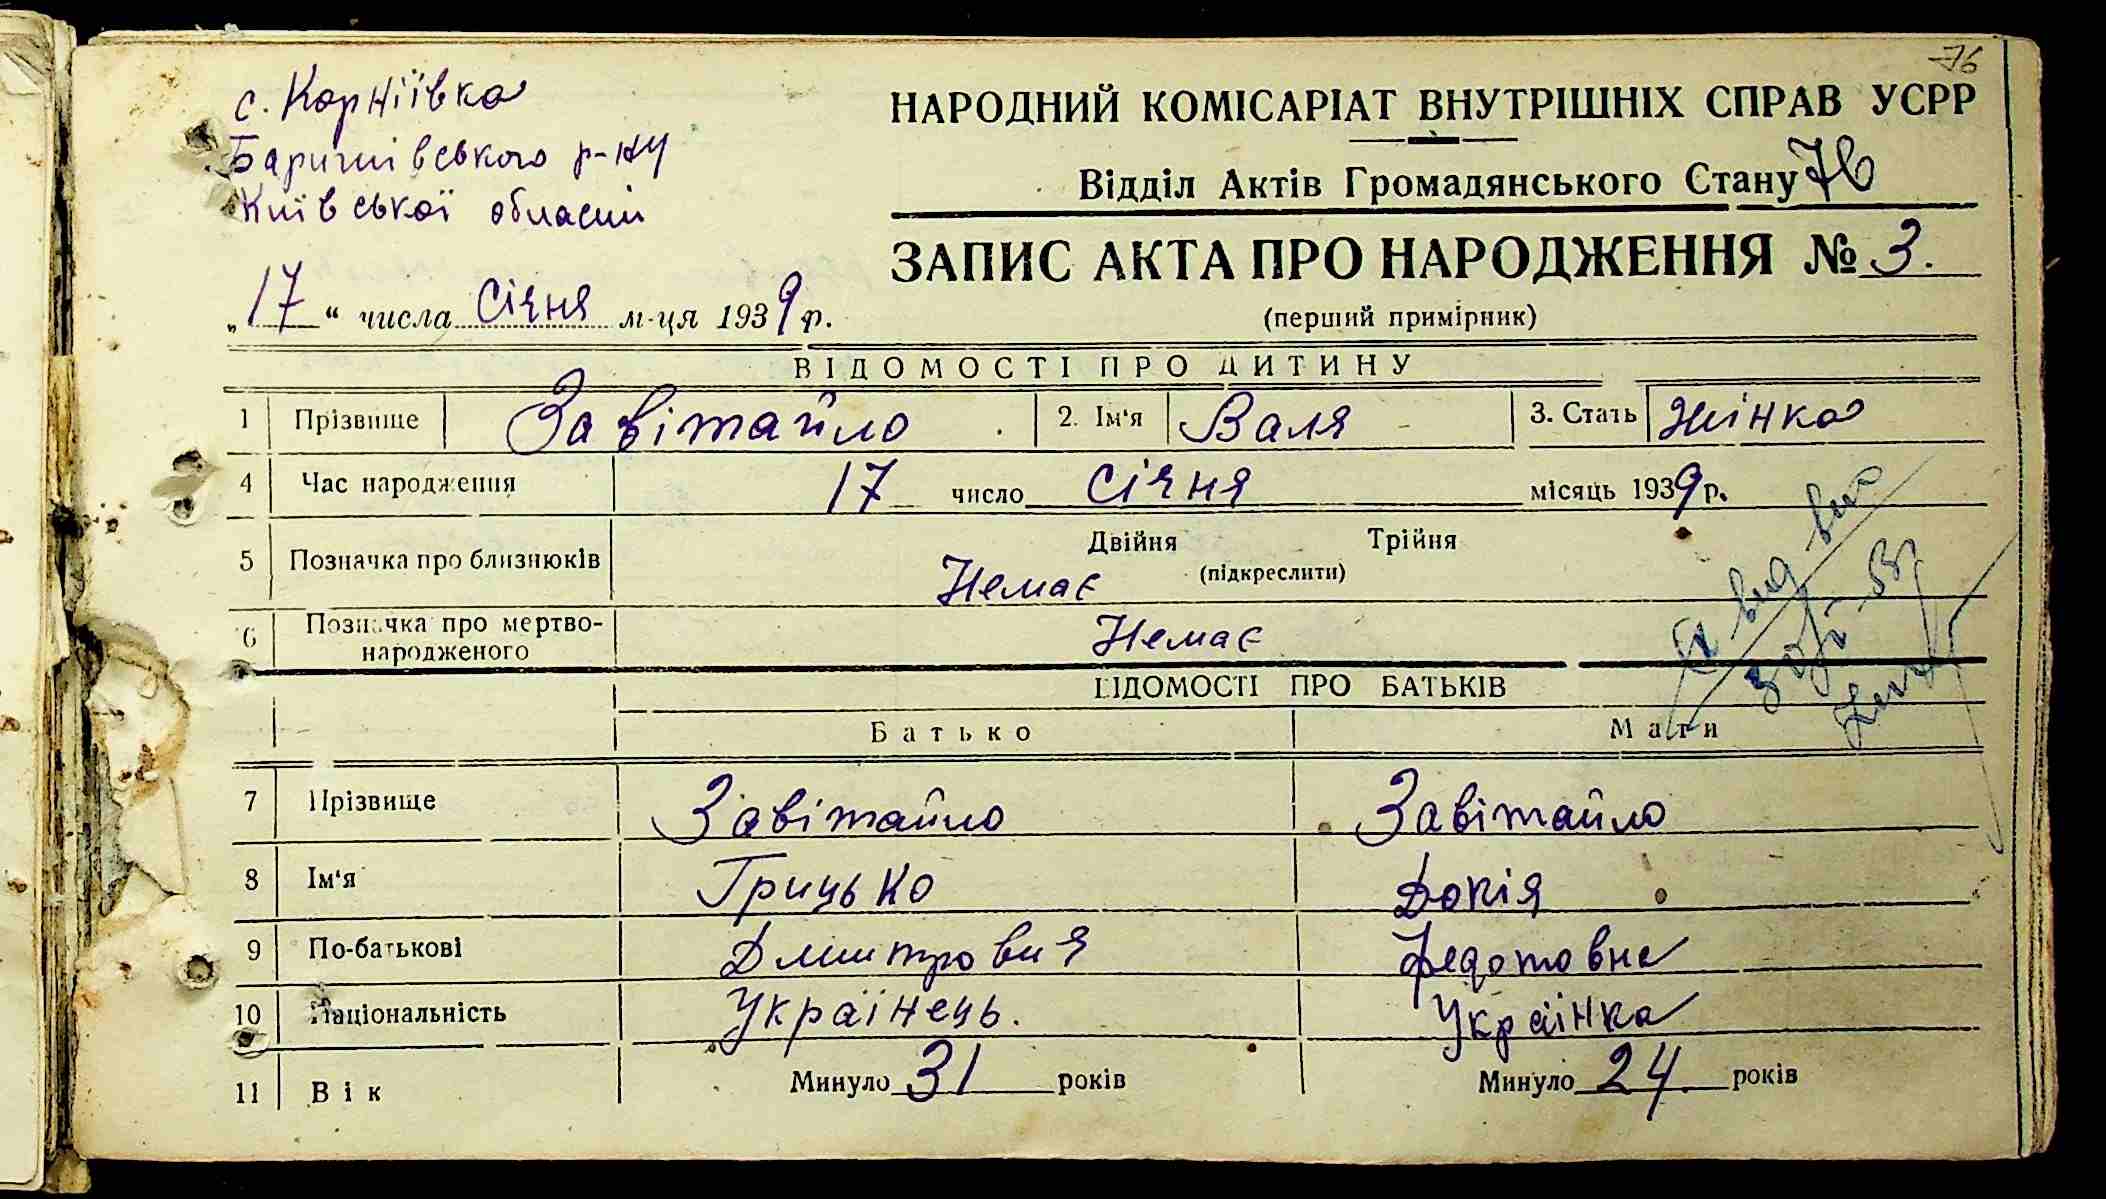 76
с. Корніївка
Баришівського р-ну
Київської області
НАРОДНИЙ КОМІСАРІАТ ВНУТРІШНІХ СПРАВ УСРР
Відділ Актів Громадянського Стану 76
ЗАПИС АКТА ПРО НАРОДЖЕННЯ № 3.
(перший примірник)
„17“ числа січня м-ця 1939 р.
ВІДОМОСТІ ПРО ДИТИНУ
1 Прізвище Завітайло 2. Ім'я Валя 3. Стать жінка
4 Час народження 17 число січня місяць 1939 р.
5 Позначка про близнюків Двійня Трійня
(підкреслити)
Немає
6 Позначка про мертво-
народженого Немає
ВІДОМОСТІ ПРО БАТЬКІВ
Батько Мати
7 Прізвище Завітайло Завітайло
8 Ім'я Грицько Докія
9 По-батькові Дмитровия Федотовна
10 Національність Українець. Українка
11 Вік Минуло 31 років Минуло 24 років